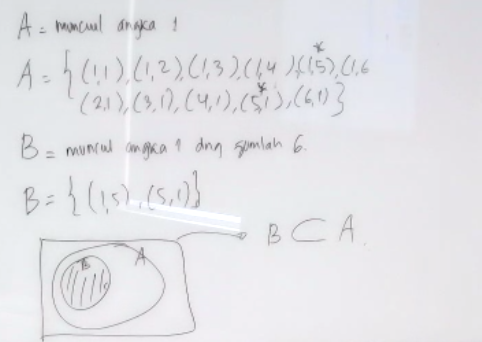 A = muncul angka 1
A = {(1,1), (1,2), (1,3), (1,4), (1,5)*, (1,6
(2,1), (3,1), (4,1), (5,1)*, (6,1)}
B = muncul angka 1 dng jumlah 6.
B = {(1,5), (5,1)}
B ⊂ A.
B A